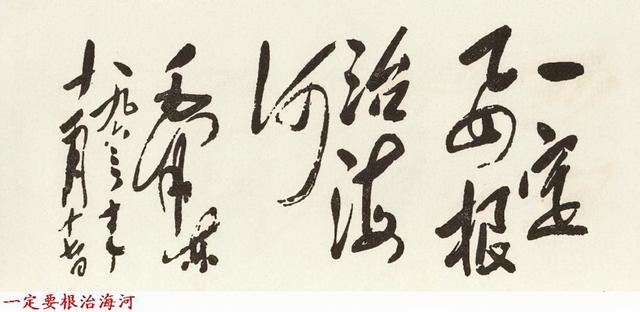 一定
要根
治海
河
毛澤東
一九六三年
十一月十七日
一定要根治海河